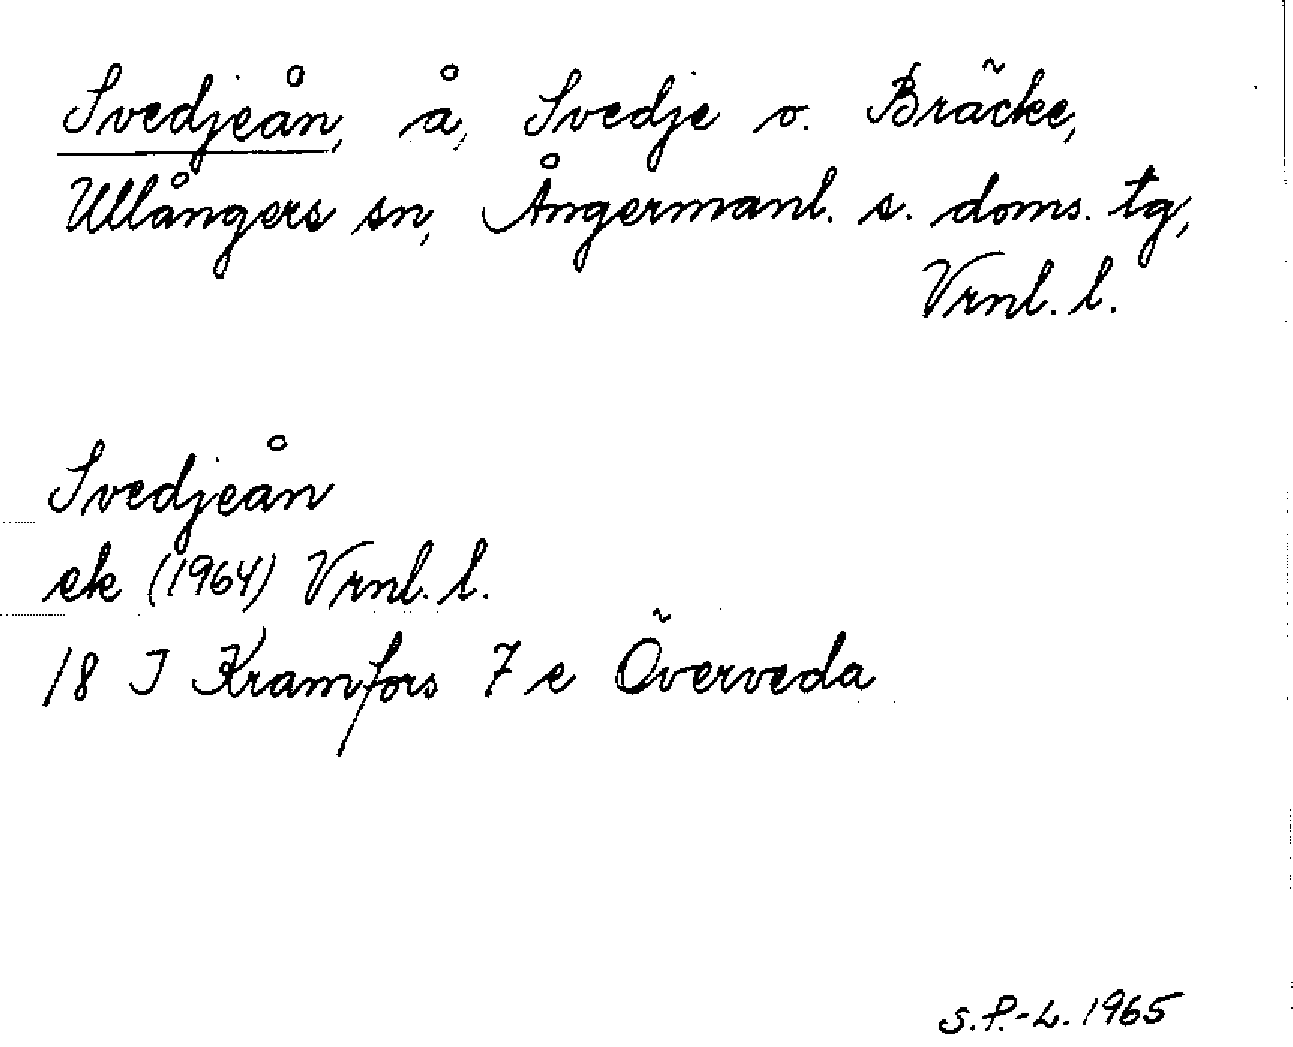 Svedjeån, å, Svedje o. Bräcke,
Ullångers sn, Ångermanl. s. doms. tg,
Vrnl. l.
Svedjeån
ek (1964) Vrnl. l.
18 I Kramfors 7 e Överveda
S.P.-L. 1965